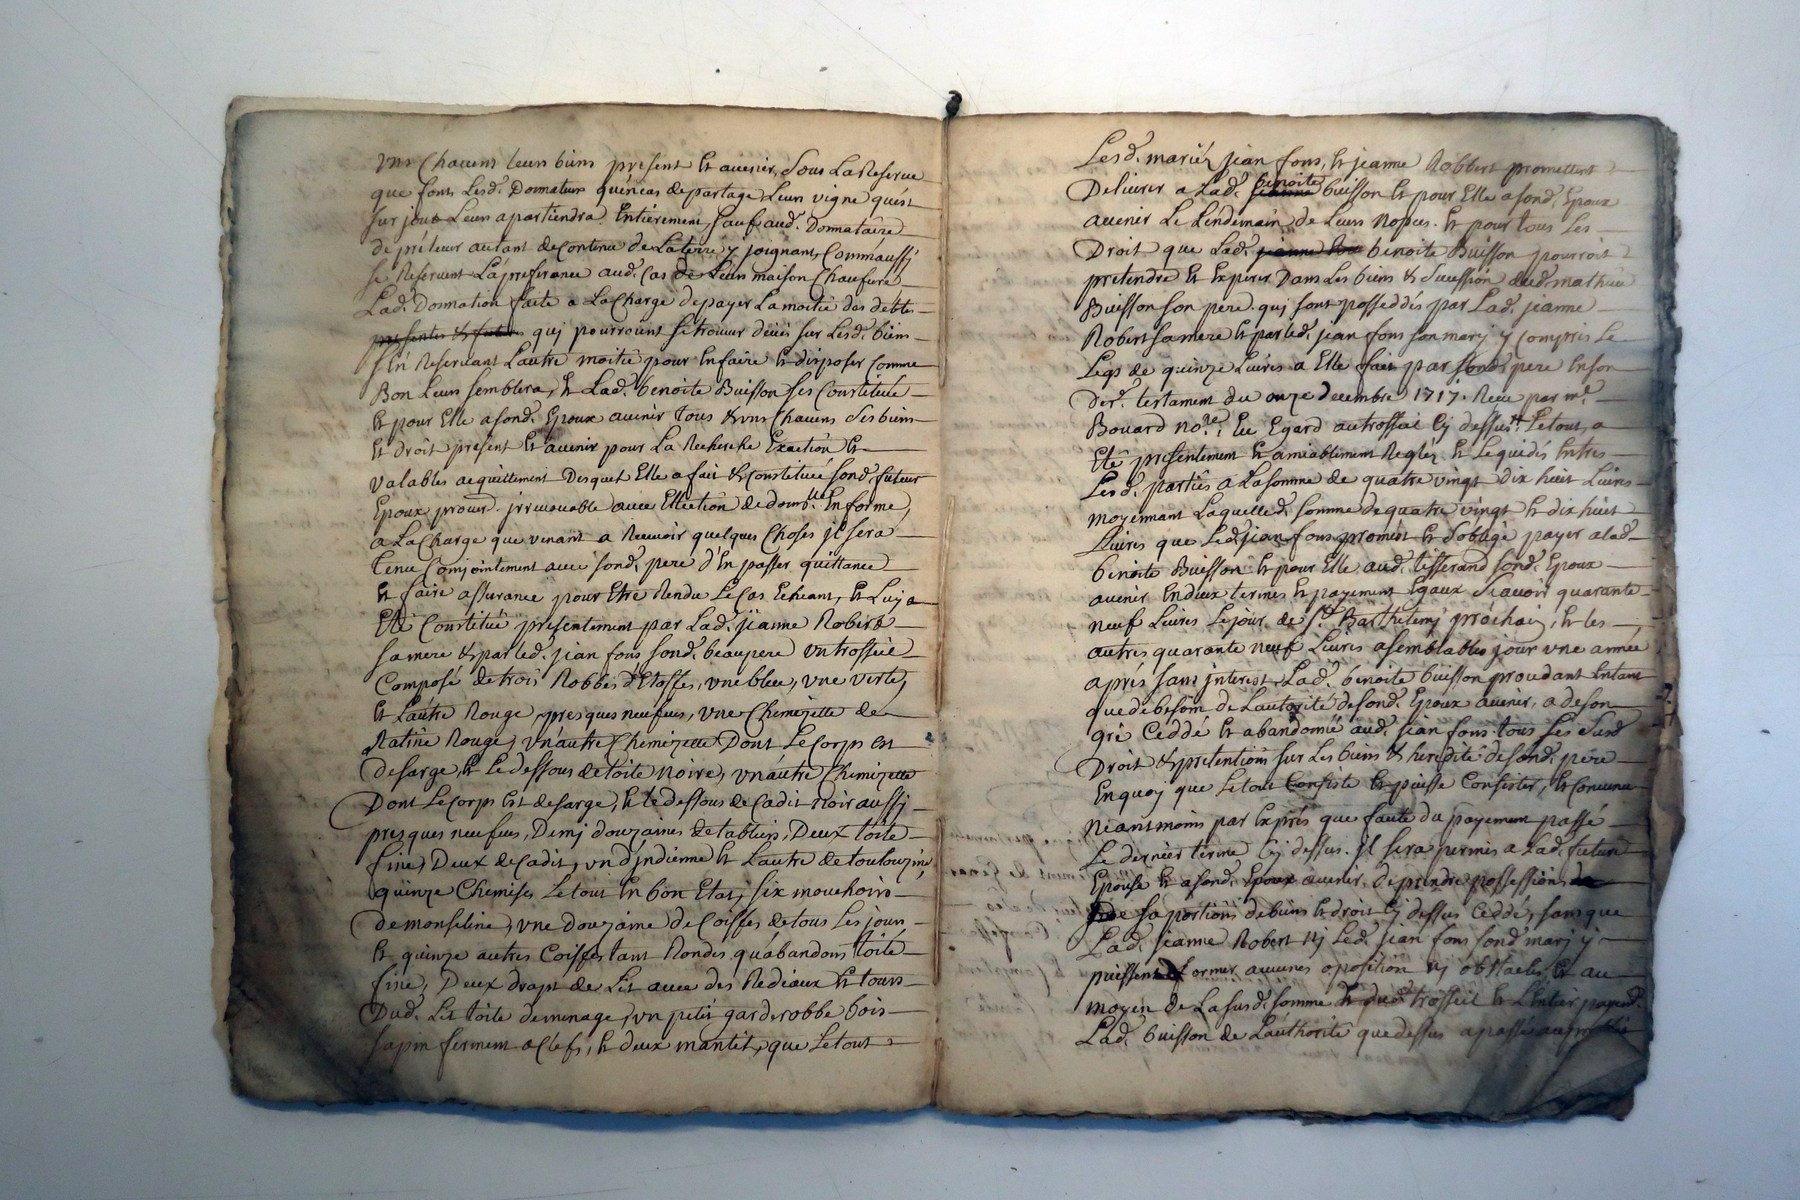 Uns Chacuns leurs biens present Et avenir, Sous La Reserve
que font Lesd. Donnateurs qu'en cas de partage Leur vigne qu'est
sur joux Leur apartiendra Entièrement, sauf aud. Donnataire
de préleur autant de contenu de La terre y joignant, Comm'aussi
se Reservent La preferance aud. Cas de Leur maison Chaufure
Lad. Donnation faite a La Charge de payer La moitié des debtes
presentes & futures qui pourroint se trouver deües sur Lesd. biens
s'En Reservant L'autre moitié pour En faire Et disposer Comme
Bon Leur semblera, Et Lad. benoite Buisson ses Constituée
Et pour Elle a sond. Epoux avenir Tous & uns Chacuns Ses biens
Et droit present Et avenir pour La Recherche Exaction Et
valables acquittement Desquet Elle a fait & Constitué sond. futeur
Epoux procur. irrevocable avec Ellection de dom.lle En forme,
a La Charge que venant a Recevoir quelques Choses jl sera
Tenu Conjointement avec sond. pere d'En passer quittance
Et faire assurance pour Etre Rendu Le Cas Echeant, Et Luy a
Eté Constitué presentement par Lad. jeanne Robert
sa mere & par led. jean fons sond. beaupere un trosseïe
Composé de trois Robbes d'Etoffes, une bleu, une verte,
Et L'autre Rouge, presques neufves, une Chemizette de
Ratine Rouge, un'autre Chemizette Dont Le Corps Est
de sarge, Et Le dessous de toile noire, un'autre Chemizette
Dont Le Corps Est de sarge, Et Le dessous de Cadit noir aussy
presques neufves, Demj douzaines de tabliers, Deux toile
fine, Deux de Cadit, un d'jndienne Et L'autre de toulouzine,
quinze Chemises Le tout En bon Etat, six mouchoirs
de monseline, une douzaine de Coiffes de tous Les jours
Et quinze autres Coiffes tant Rondes qu'abandons toile
fine, Deux draps de Lit avec des Rediaux Et tours
Dud. Lit toile de menage, un petit garderobbe bois
sapin ferment a Clefs, Et deux mantit, que Le tout
Lesd. mariéz jean fons, Et jeanne Robbert promettent
Delivrer a Lad. jeanne benoite buisson Et pour Elle a sond. Epoux
avenir Le Lendemain de Leurs Nopces. Et pour tous Les
Droit que Lad. jeanne benoite Buisson pourroit
pretendre Et Experer Dans Les biens & Sucession dud. mathieu
Buisson son pere qui sont posseddés par Lad. jeanne
Robert sa mere Et par led. jean fons son mary y compris Le
Legs de quinze Livres a Elle fait par sond. pere En son
der. testament du onze decembre 1717. Receu par m.e
Bouard no.re, Eu Egard au trosseïe Cy dessus. Le tout, a
Eté presentement Et amiablement Regléz Et Lequidés Entres
Lesd. partiês a La somme de quatre vingt dix huit Livres
moyennant Laquelled. somme de quatre vingt Et dix huit
Livres que Led. jean fons promest Et s'obligé payer a lad.
benoite Buisson Et pour Elle aud. tisserand sond. Epoux
avenir En deux termes Et payement Egaux Scavoir quarante
neuf Livres Le jour de S.t Barthelemy prochain, Et les
autres quarante neuf Livres a semblables jour une année
aprés sans jnterest. Lad. benoite buisson proucdant Entant
que de besoin de L'autorité de sond. Epoux avenir, a de son
gré Ceddé Et abandonné aud. jean fons tous Les Susd.
Droit & pretentions sur Les biens & heredité de sond. pere
En quoy que Le tout Consiste Et puisse Consister, Et Convenu
Néantmoins par Exprés que faute du payement passé
Le dernier terme Cy dessus. jl sera permis a Lad. future
Epouse Et a sond. Epoux avenir de prendre possessions
de sa portions de biens Et droit Cy dessus Ceddé, sans que
Lad. jeanne Robert Ny Led. jean fons sond. mary y
puissent former aucunes oposition ny obstacles, Et au
moyen de La susd. somme Et dud. trosseïe Et L'Entier payem.t
Lad. buisson de L'authorité que dessus a passé